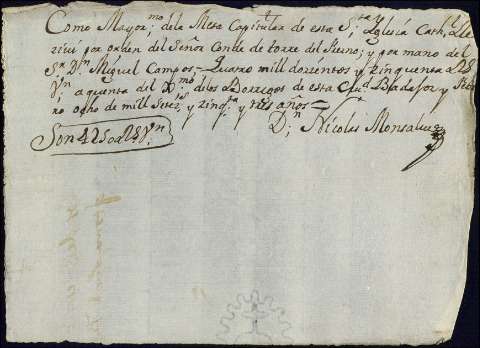 Como Mayor,mo dela Mesa Capitular de esta S,ta Yglesia Cathl, Re
civi por orden del Señor Conde de torre del fresno; y por mano del
Sr Dn Miguel Campos = Quatro mill docientos y zinquenta Rs
Vn, a quenta del Dmo delos Borregos de esta Ciud, Badajoz y
no ocho de mill Setts, y zinqta y tres años =
Dn, Nicolas Monsalue
Son 4250 Rs Vn